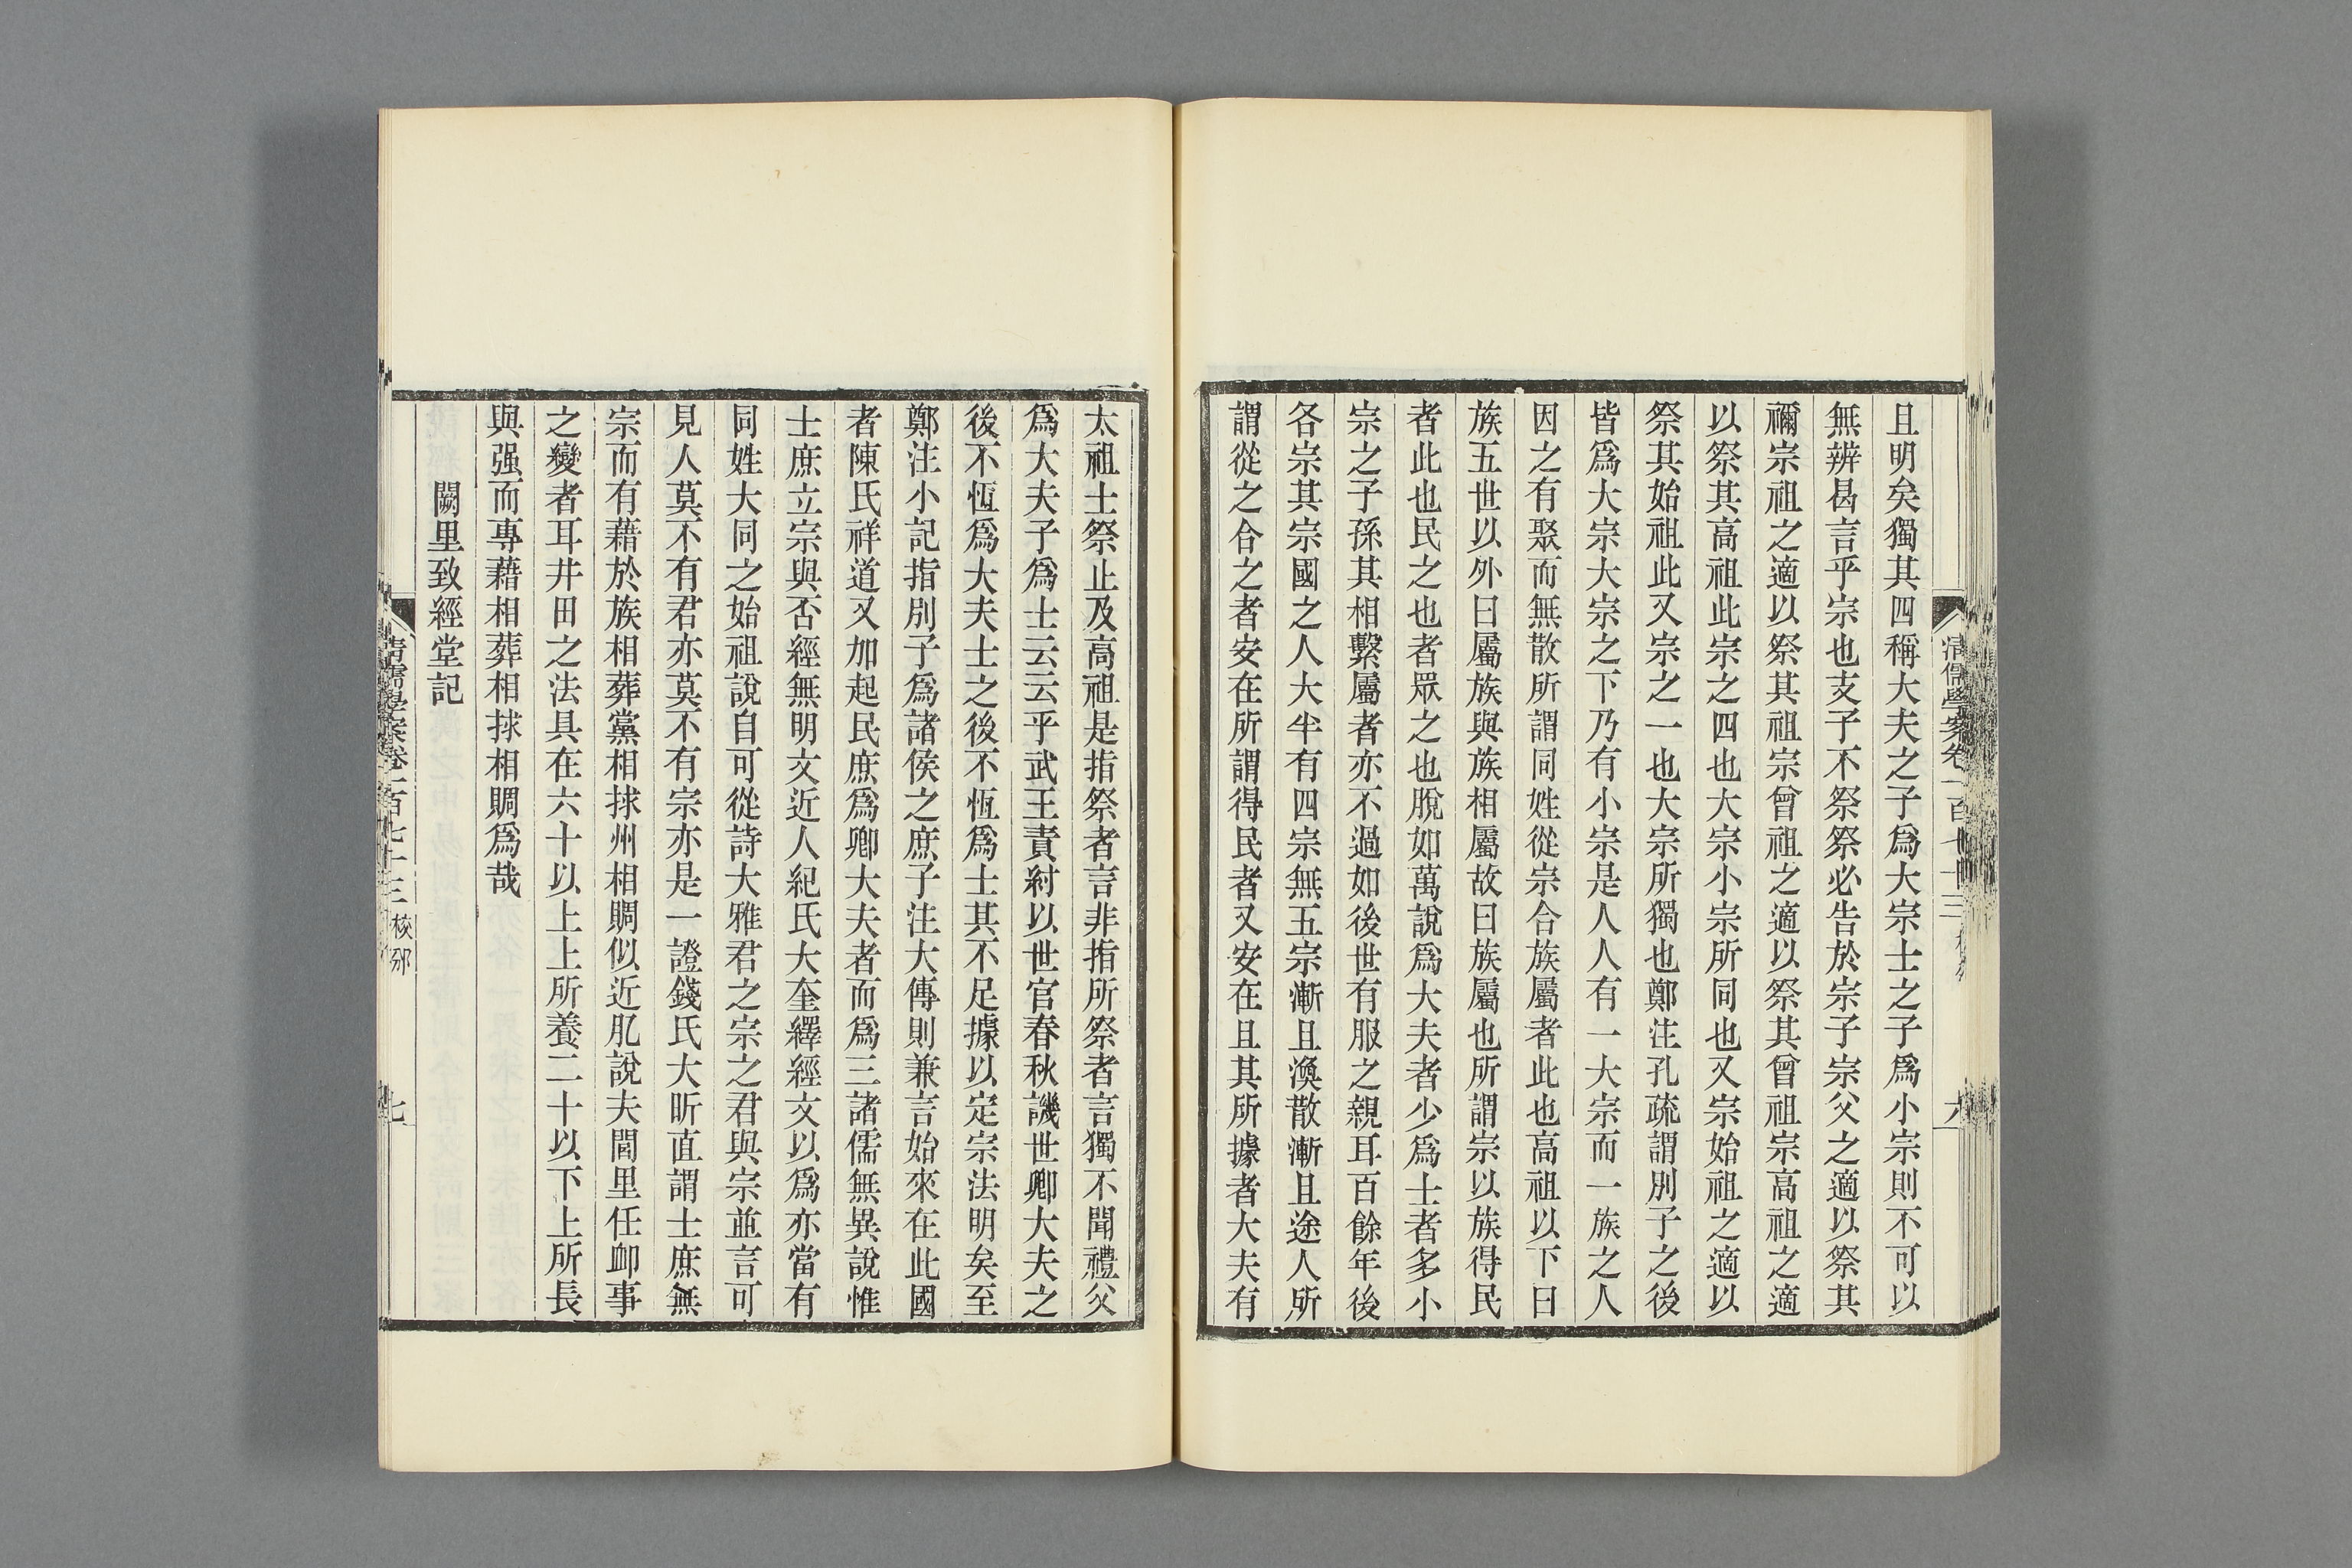 且明矣獨其四稱大夫之子爲大宗士之子爲小宗則不可以
無辨曷言乎宗也支子不祭祭必告於宗子宗父之適以祭其
禰宗祖之適以祭其祖宗曾祖之適以祭其曾祖宗高祖之適
以祭其高祖此宗之四也大宗小宗所同也又宗始祖之適以
祭其始祖此又宗之一也大宗所獨也鄭注孔疏謂別子之後
皆爲大宗大宗之下乃有小宗是人人有一大宗而一族之人
因之有聚而無散所謂同姓從宗合族屬者此也高祖以下曰
族五世以外曰屬族與族相屬故曰族屬也所謂宗以族得民
者此也民之也者眾之也脫如萬說爲大夫者少爲士者多小
宗之子孫其相繫屬者亦不過如後世有服之親耳百餘年後
各宗其宗國之人大半有四宗無五宗漸且渙散漸且途人所
謂從之合之者安在所謂得民者又安在且其所據者大夫有
太祖士祭止及高祖是指祭者言非指所祭者言獨不聞禮父
爲大夫子爲士云云乎武王責紂以世官春秋譏世卿大夫之
後不恆爲大夫士之後不恆爲士其不足據以定宗法明矣至
鄭注小記指別子爲諸侯之庶子注大傳則兼言始來在此國
者陳氏祥道又加起民庶爲卿大夫者而爲三諸儒無異說惟
士庶立宗與否經無明文近人紀氏大奎繹經文以爲亦當有
同姓大同之始祖說自可從詩大雅君之宗之君與宗並言可
見人莫不有君亦莫不有宗亦是一證錢氏大昕直謂士庶無
宗而有藉於族相葬黨相捄州相賙似近肊說夫閭里任卹事
之變者耳井田之法具在六十以上上所養二十以下上所長
與强而專藉相葬相捄相賙爲哉
闕里致經堂記
清儒學案卷一百七十三 校邠 七